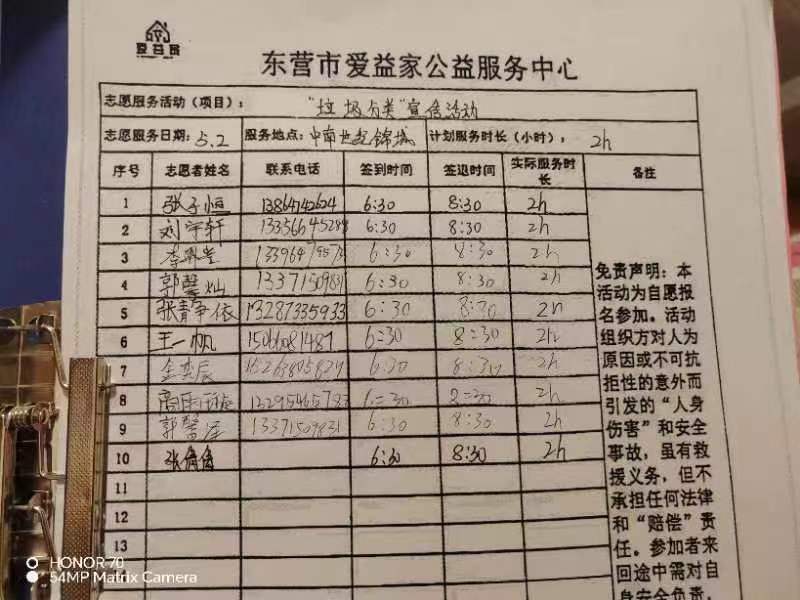 爱益家
东营市爱益家公益服务中心
志愿服务活动（项目）： "垃圾分类"宣传活动
志愿服务日期：5.2 服务地点：中南世纪锦城 计划服务时长（小时）： 2h
序号 志愿者姓名 联系电话 签到时间 签退时间 实际服务时长 备注
1 张子恒 13864742624 6:30 8:30 2h
2 刘宇轩 1335664528 6:30 8:30 2h
3 6:30 8:30 2h
4 郭馨灿 13371509831 6:30 8:30 2h
5 张静依 13287335933 6:30 8:30 2h
6 王一帆 6:30 8:30 2h
7 金奕辰 6:30 8:30 2h
8 2h
9 郭馨泽 13371509831 6:30 8:30 2h
10 张倩倩 6:30 8:30 2h
11
12
13
免责声明：本
活动为自愿报
名参加。活动
组织方对人为
原因或不可抗
拒性的意外而
引发的“人身
伤害”和安全
事故，虽有救
援义务，但不
承担任何法律
和“赔偿”责
任。参加者来
回途中需对自
身安全负责，
HONOR 70
54MP Matrix Camera